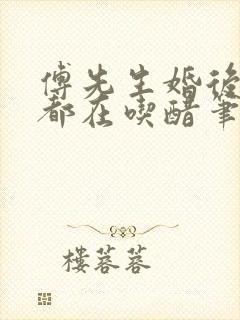 傅先生婚後
都在喫醋筆
樓蓉蓉